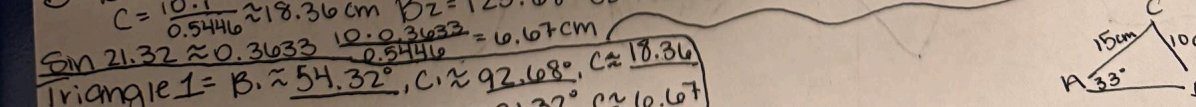 C = 10.1 / 0.5446 ≈ 18.36 cm B2 =
Sin 21.32 ≈ 0.3633 10 · 0.3633 / 0.5446 = 6.67cm
Triangle 1 = B1 ≈ 54.32°, C1 ≈ 92.68°, C ≈ 18.36
C ≈ 6.67
C
15cm
A 33°